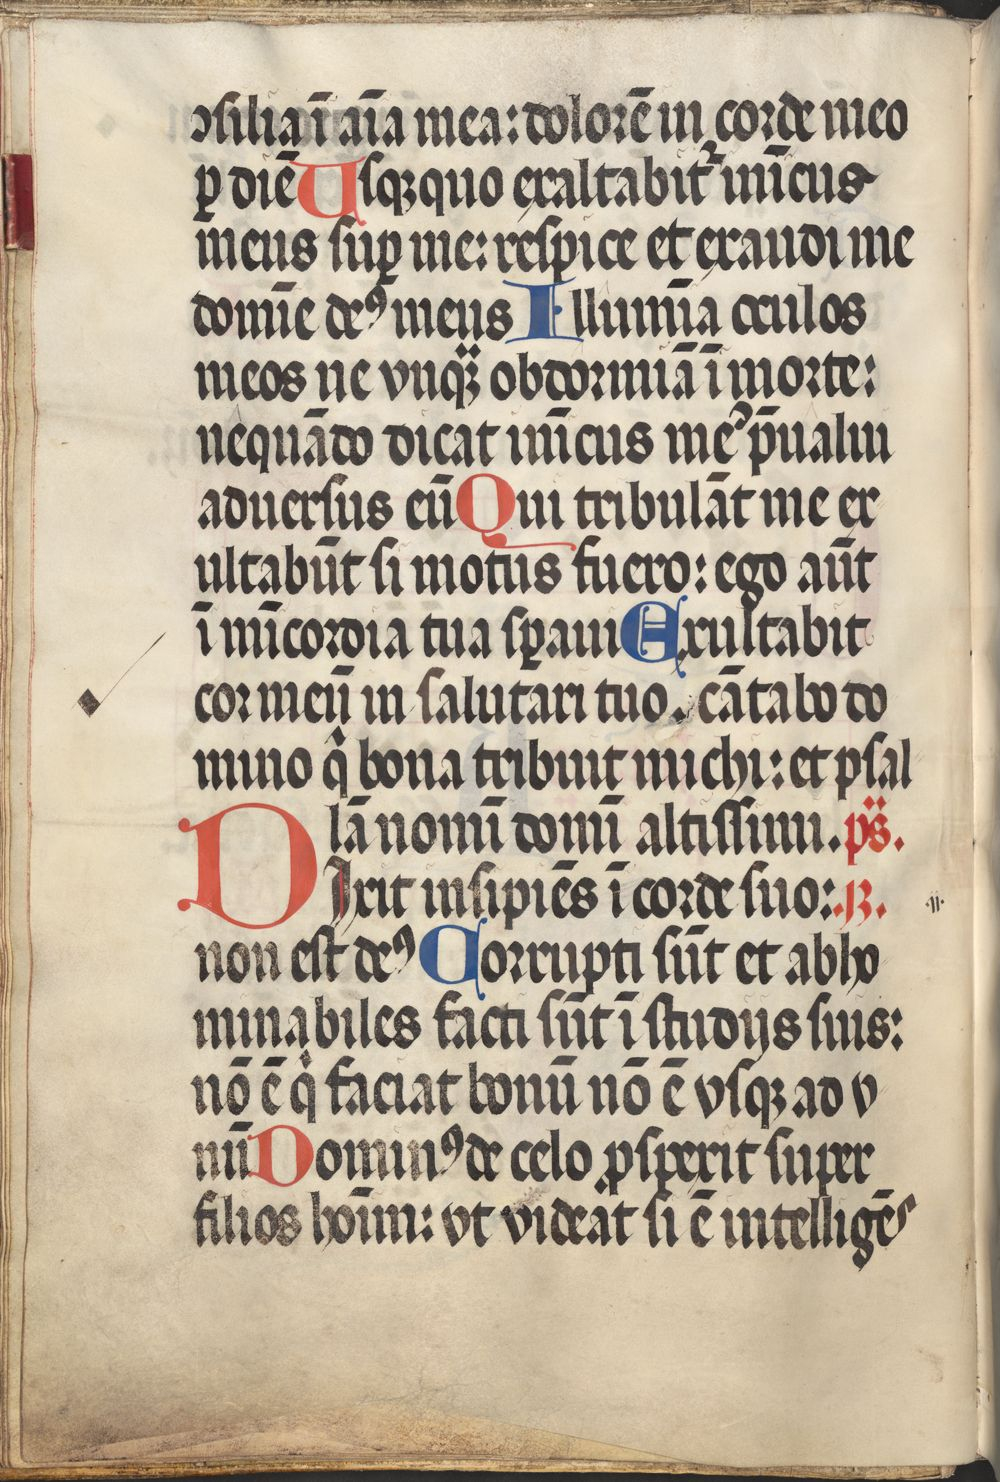 ɔsilia ī aīa mea: dolorē in corde meo
ꝑ diē Usqꝫquo exaltabit᷑ inīcus
meus suꝑ me: respice et exaudi me
domīe deꝰ meus Illumīa oculos
meos ne vnqᷓꝫ obdormiā ī morte:
nequādo dicat inīcus meꝰ p̄ualui
aduersus eū Qui tribulāt me ex
ultabūt si motus fuero: ego aūt
ī mīcordia tua sꝑaui Exultabit
cor meū in salutari tuo. cātabo do
mino qͥ bona tribuit michi: et psal
lā nomī domī altissimi. ps̄.
Dixit insipiēs ī corde suo: .13.
.ii.
non est deꝰ Corrupti sūt et abho
minabiles facti sūt ī studijs suis:
nō ē qͥ faciat bonū nō ē vsqꝫ ad v
nū Dominꝰ de celo ꝓspexit super
filios hoīm: vt videāt si ē intelligēs